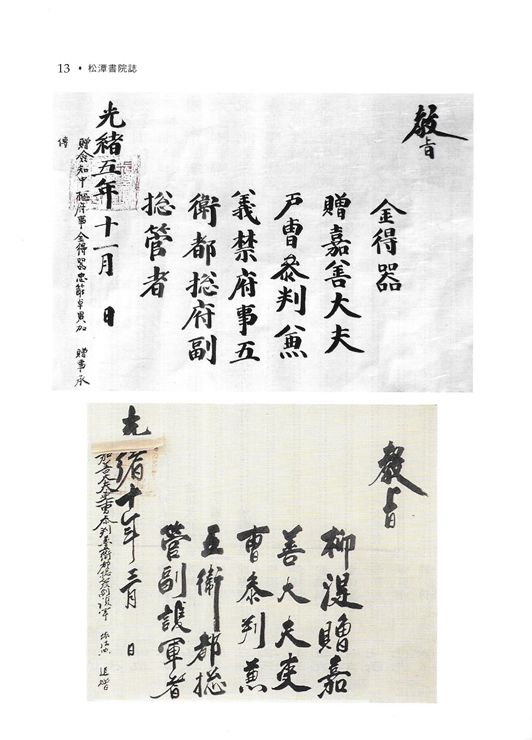 13 • 松潭書院誌
敎旨
金得器
贈嘉善大夫
戶曹叅判兼
義禁府事五
衛都摠府副
摠管者
光緖五年十一月 日
贈僉知中樞府事金得器忠節卓異加 贈事承
傳
敎旨
柳渂贈嘉
善大夫吏
曹叅判兼
五衛都摠
管副護軍者
光緖十年三月 日